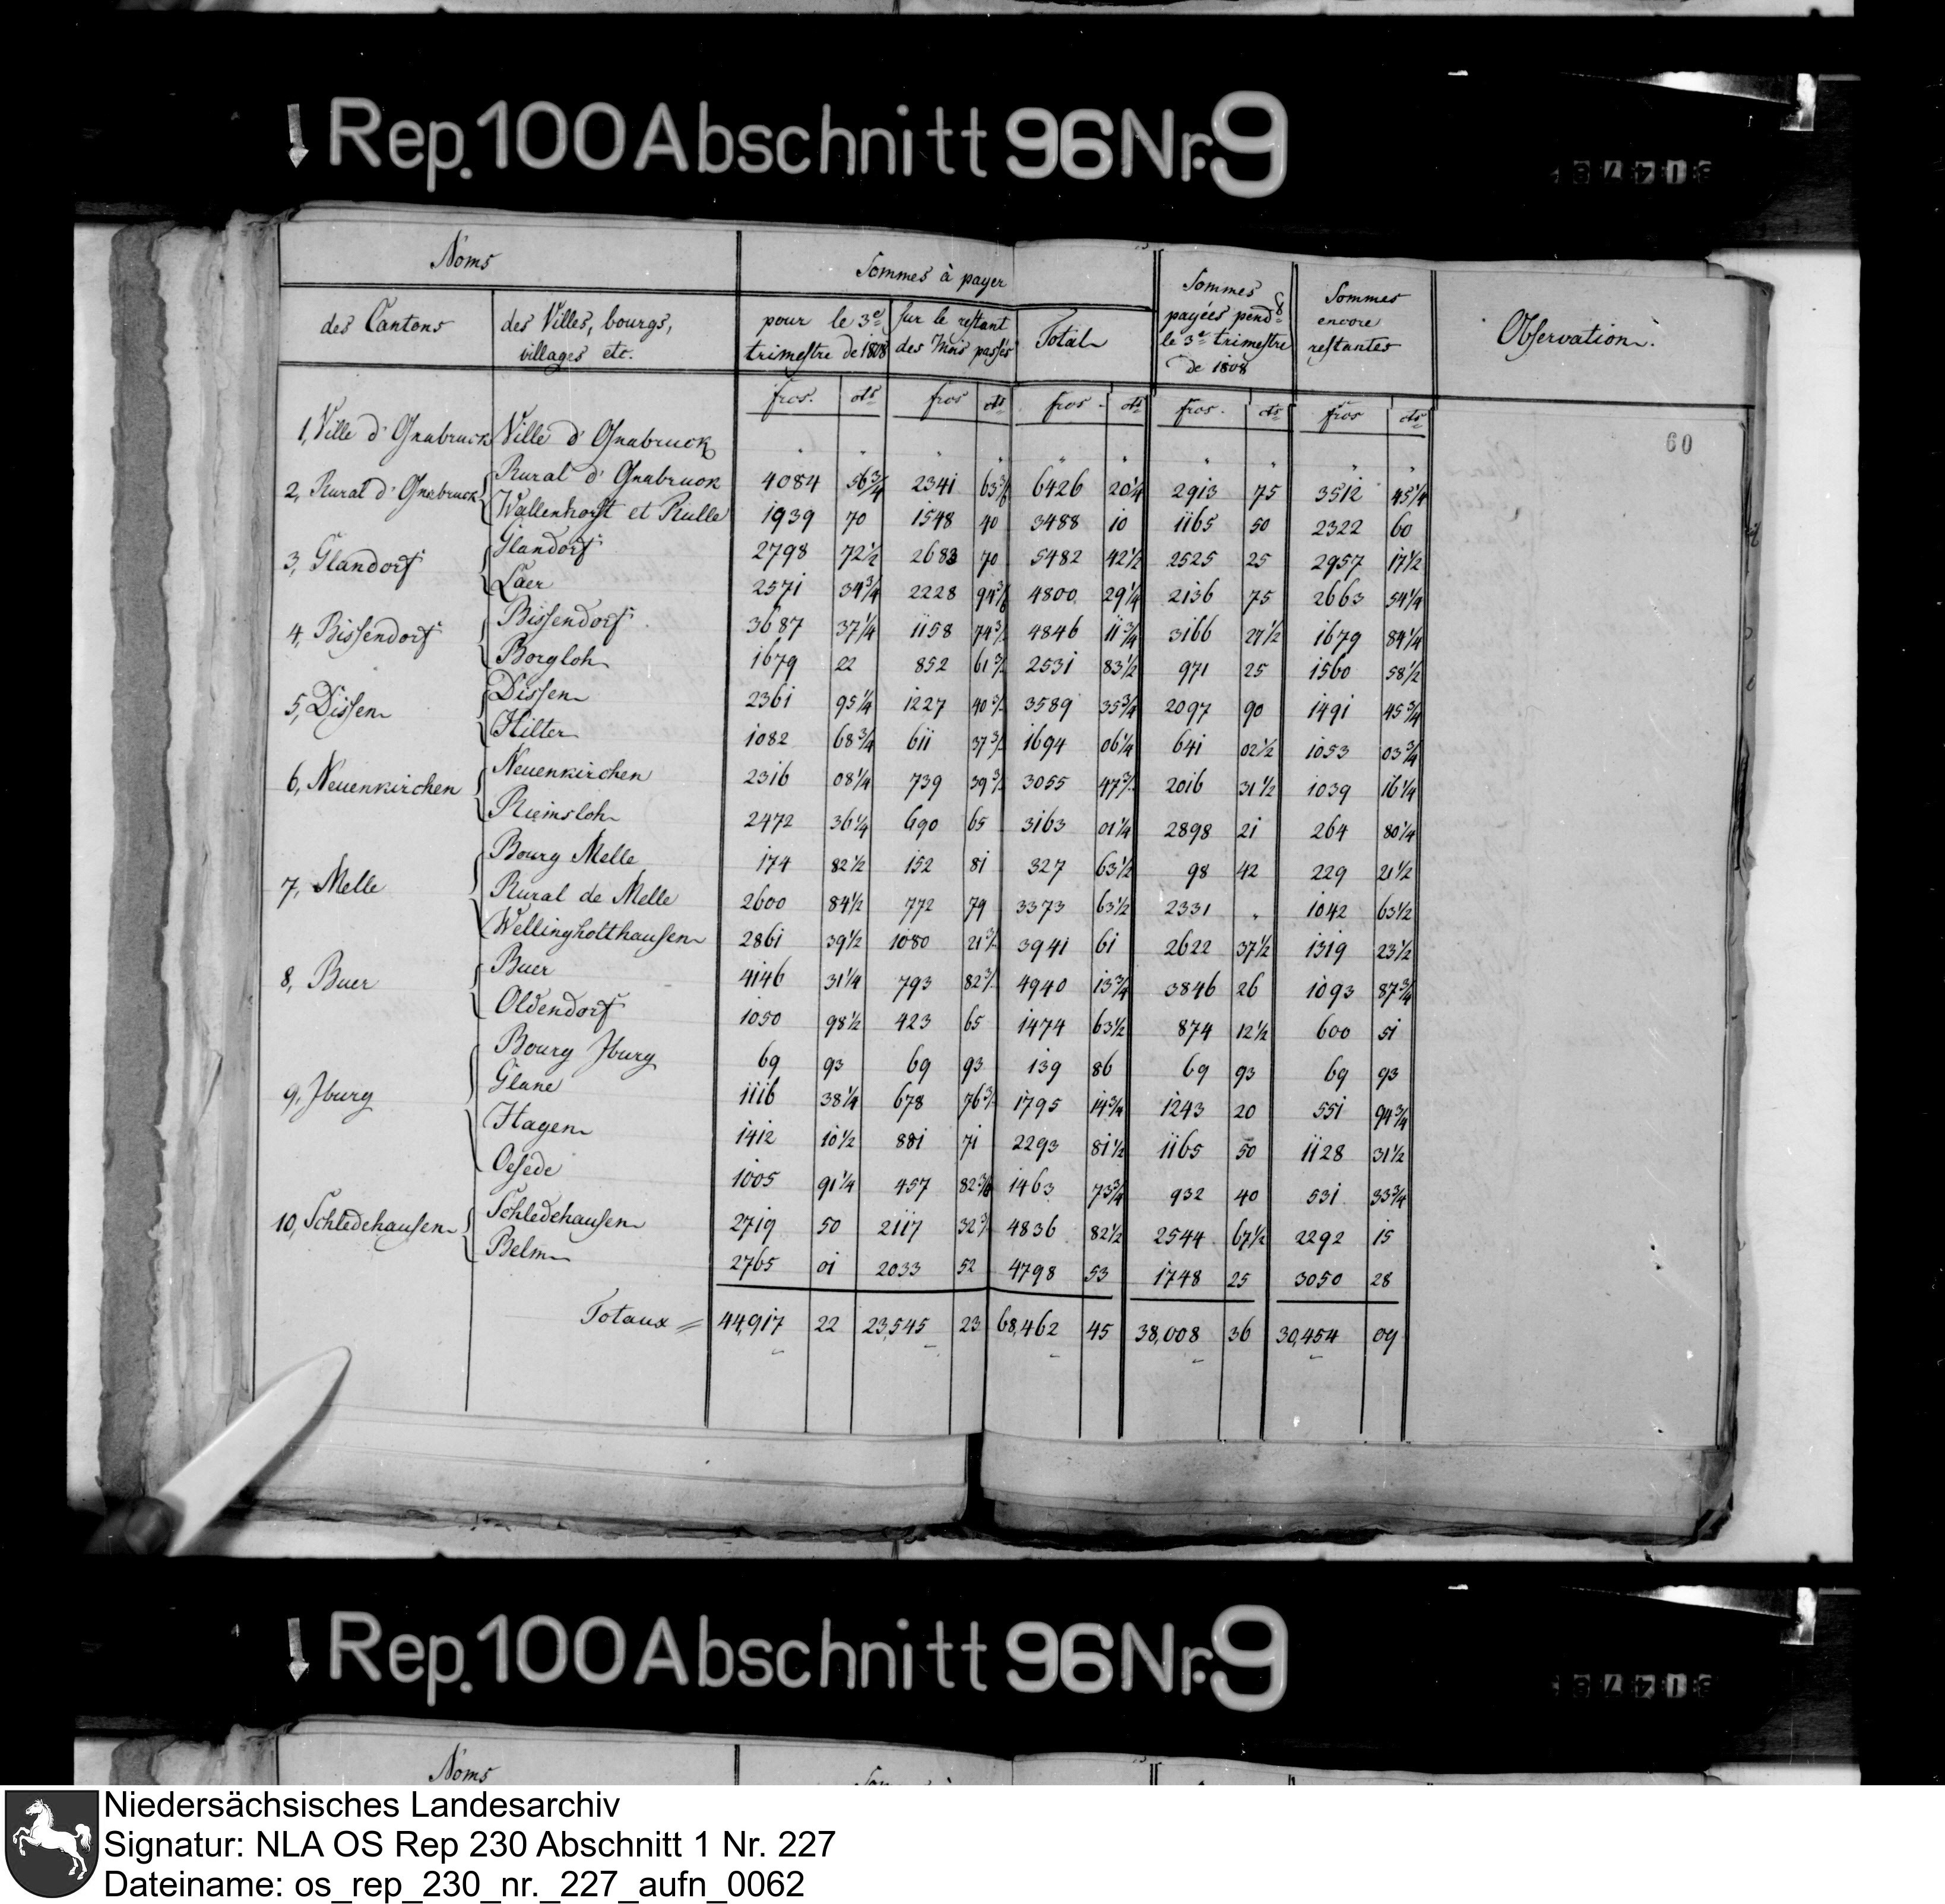 Rep. 100 Abschnitt 96 Nr. 9
Noms
Sommes à payer
Sommes payées pend.t le 3.e trimestre de 1808
Sommes encore restantes
Observation.
des Cantons
des Villes, bourgs, villages etc.
pour le 3.e trimestre de 1808
Sur le restant des Mois passés
Total
frcs. cts frcs cts frcs. cts frcs. cts frcs cts
60
1, Ville d'Osnabruck Ville d'Osnabruck " " " " " " " " " "
2, Rural d'Osnabruck Rural d'Osnabruck 4084 56 3/4 2341 63 3/ 6426 20 1/4 2913 75 3512 45 1/4
Wallenhorst et Rulle 1939 70 1548 40 3488 10 1165 50 2322 60
3, Glandorf Glandorf 2798 72 1/2 2683 70 5482 42 1/2 2525 25 2957 17 1/2
Laer 2571 34 3/4 2228 94 3/ 4800 29 1/4 2136 75 2663 54 1/4
4, Bissendorf Bissendorf 3687 37 1/4 1158 74 3/ 4846 11 3/4 3166 27 1/2 1679 84 1/4
Borgloh 1679 22 852 61 3/ 2531 83 1/2 971 25 1560 58 1/2
5, Dissen Dissen 2361 95 1/4 1227 40 3/ 3589 35 3/4 2097 90 1491 45 3/4
Hilter 1082 68 3/4 611 37 3/ 1694 06 1/4 641 02 1/2 1053 03 3/4
6, Neuenkirchen Neuenkirchen 2316 08 1/4 739 39 3/ 3055 47 3/ 2016 31 1/2 1039 16 1/4
Riemsloh 2472 36 1/4 690 65 3163 01 1/4 2898 21 264 80 1/4
Bourg Melle 174 82 1/2 152 81 327 63 1/2 98 42 229 21 1/2
7, Melle Rural de Melle 2600 84 1/2 772 79 3373 63 1/2 2331 " 1042 63 1/2
Wellingholthausen 2861 39 1/2 1080 21 3/ 3941 61 2622 37 1/2 1319 23 1/2
8, Buer Buer 4146 31 1/4 793 82 3/ 4940 13 3/4 3846 26 1093 87 3/4
Oldendorf 1050 98 1/2 423 65 1474 63 1/2 874 12 1/2 600 51
Bourg Jburg 69 93 69 93 139 86 69 93 69 93
9, Jburg Glane 1116 38 1/4 678 76 3/ 1795 14 3/4 1243 20 551 94 3/4
Hagen 1412 10 1/2 881 71 2293 81 1/2 1165 50 1128 31 1/2
Oesede 1005 91 1/4 457 82 3/ 1463 73 3/4 932 40 531 33 3/4
10, Schledehausen Schledehausen 2719 50 2117 32 3/ 4836 82 1/2 2544 67 1/2 2292 15
Belm 2765 01 2033 52 4798 53 1748 25 3050 28
Totaux = 44,917 22 23,545 23 68,462 45 38,008 36 30,454 09
Rep. 100 Abschnitt 96 Nr. 9
Noms
Niedersächsisches Landesarchiv
Signatur: NLA OS Rep 230 Abschnitt 1 Nr. 227
Dateiname: os_rep_230_nr._227_aufn_0062